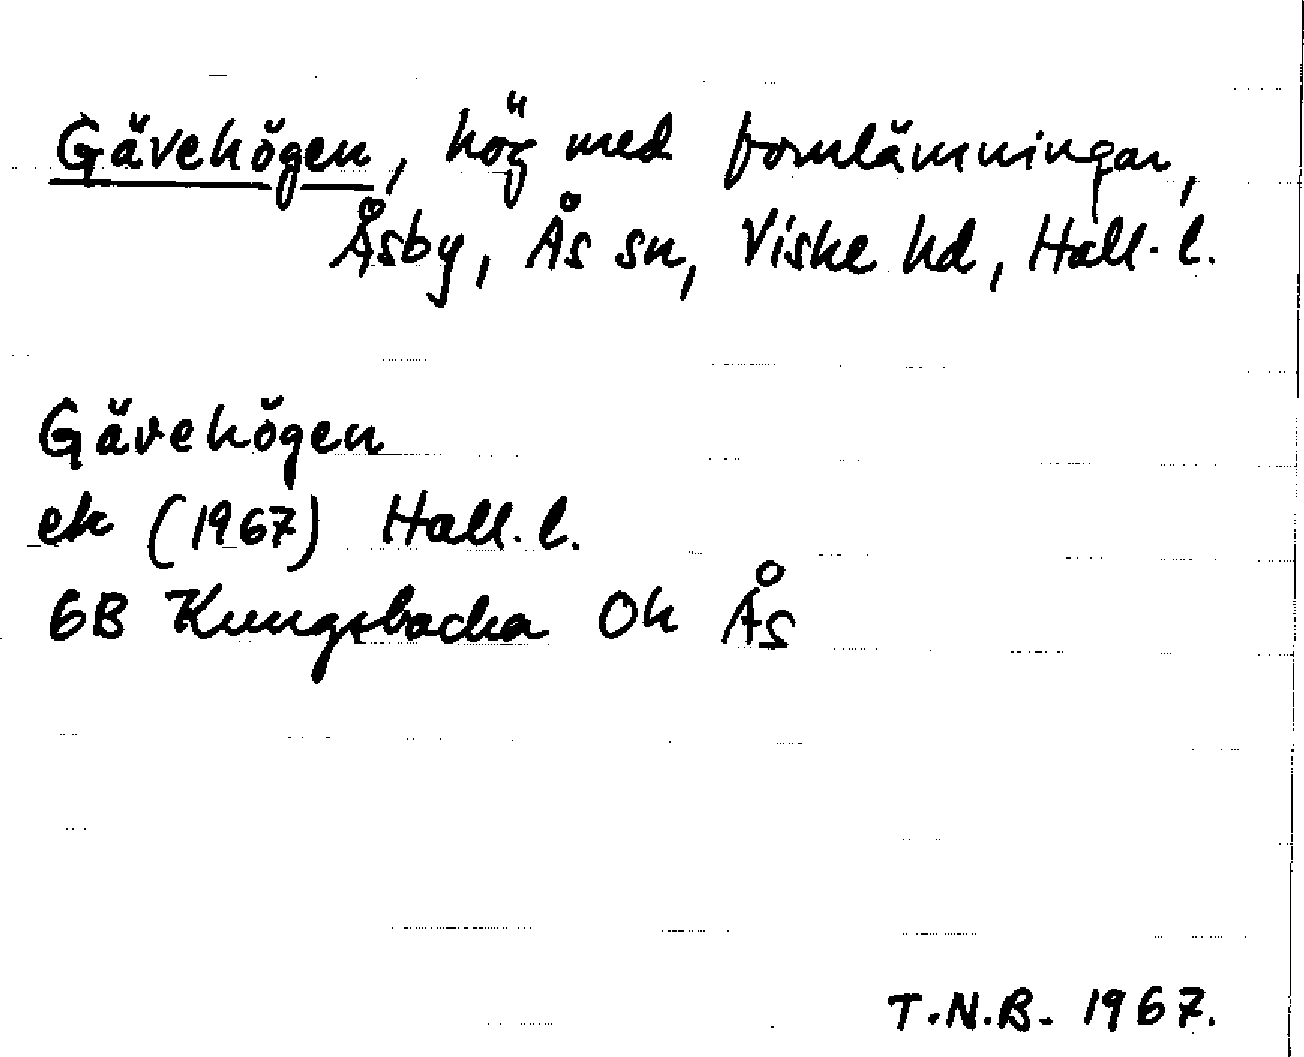 Gävehögen, hög med fornlämningar,
Åsby, Ås sn, Viske hd, Hall. l.
Gävehögen
ek (1967) Hall. l.
6B Kungsbacka Ok Ås
T.N.B. 1967.